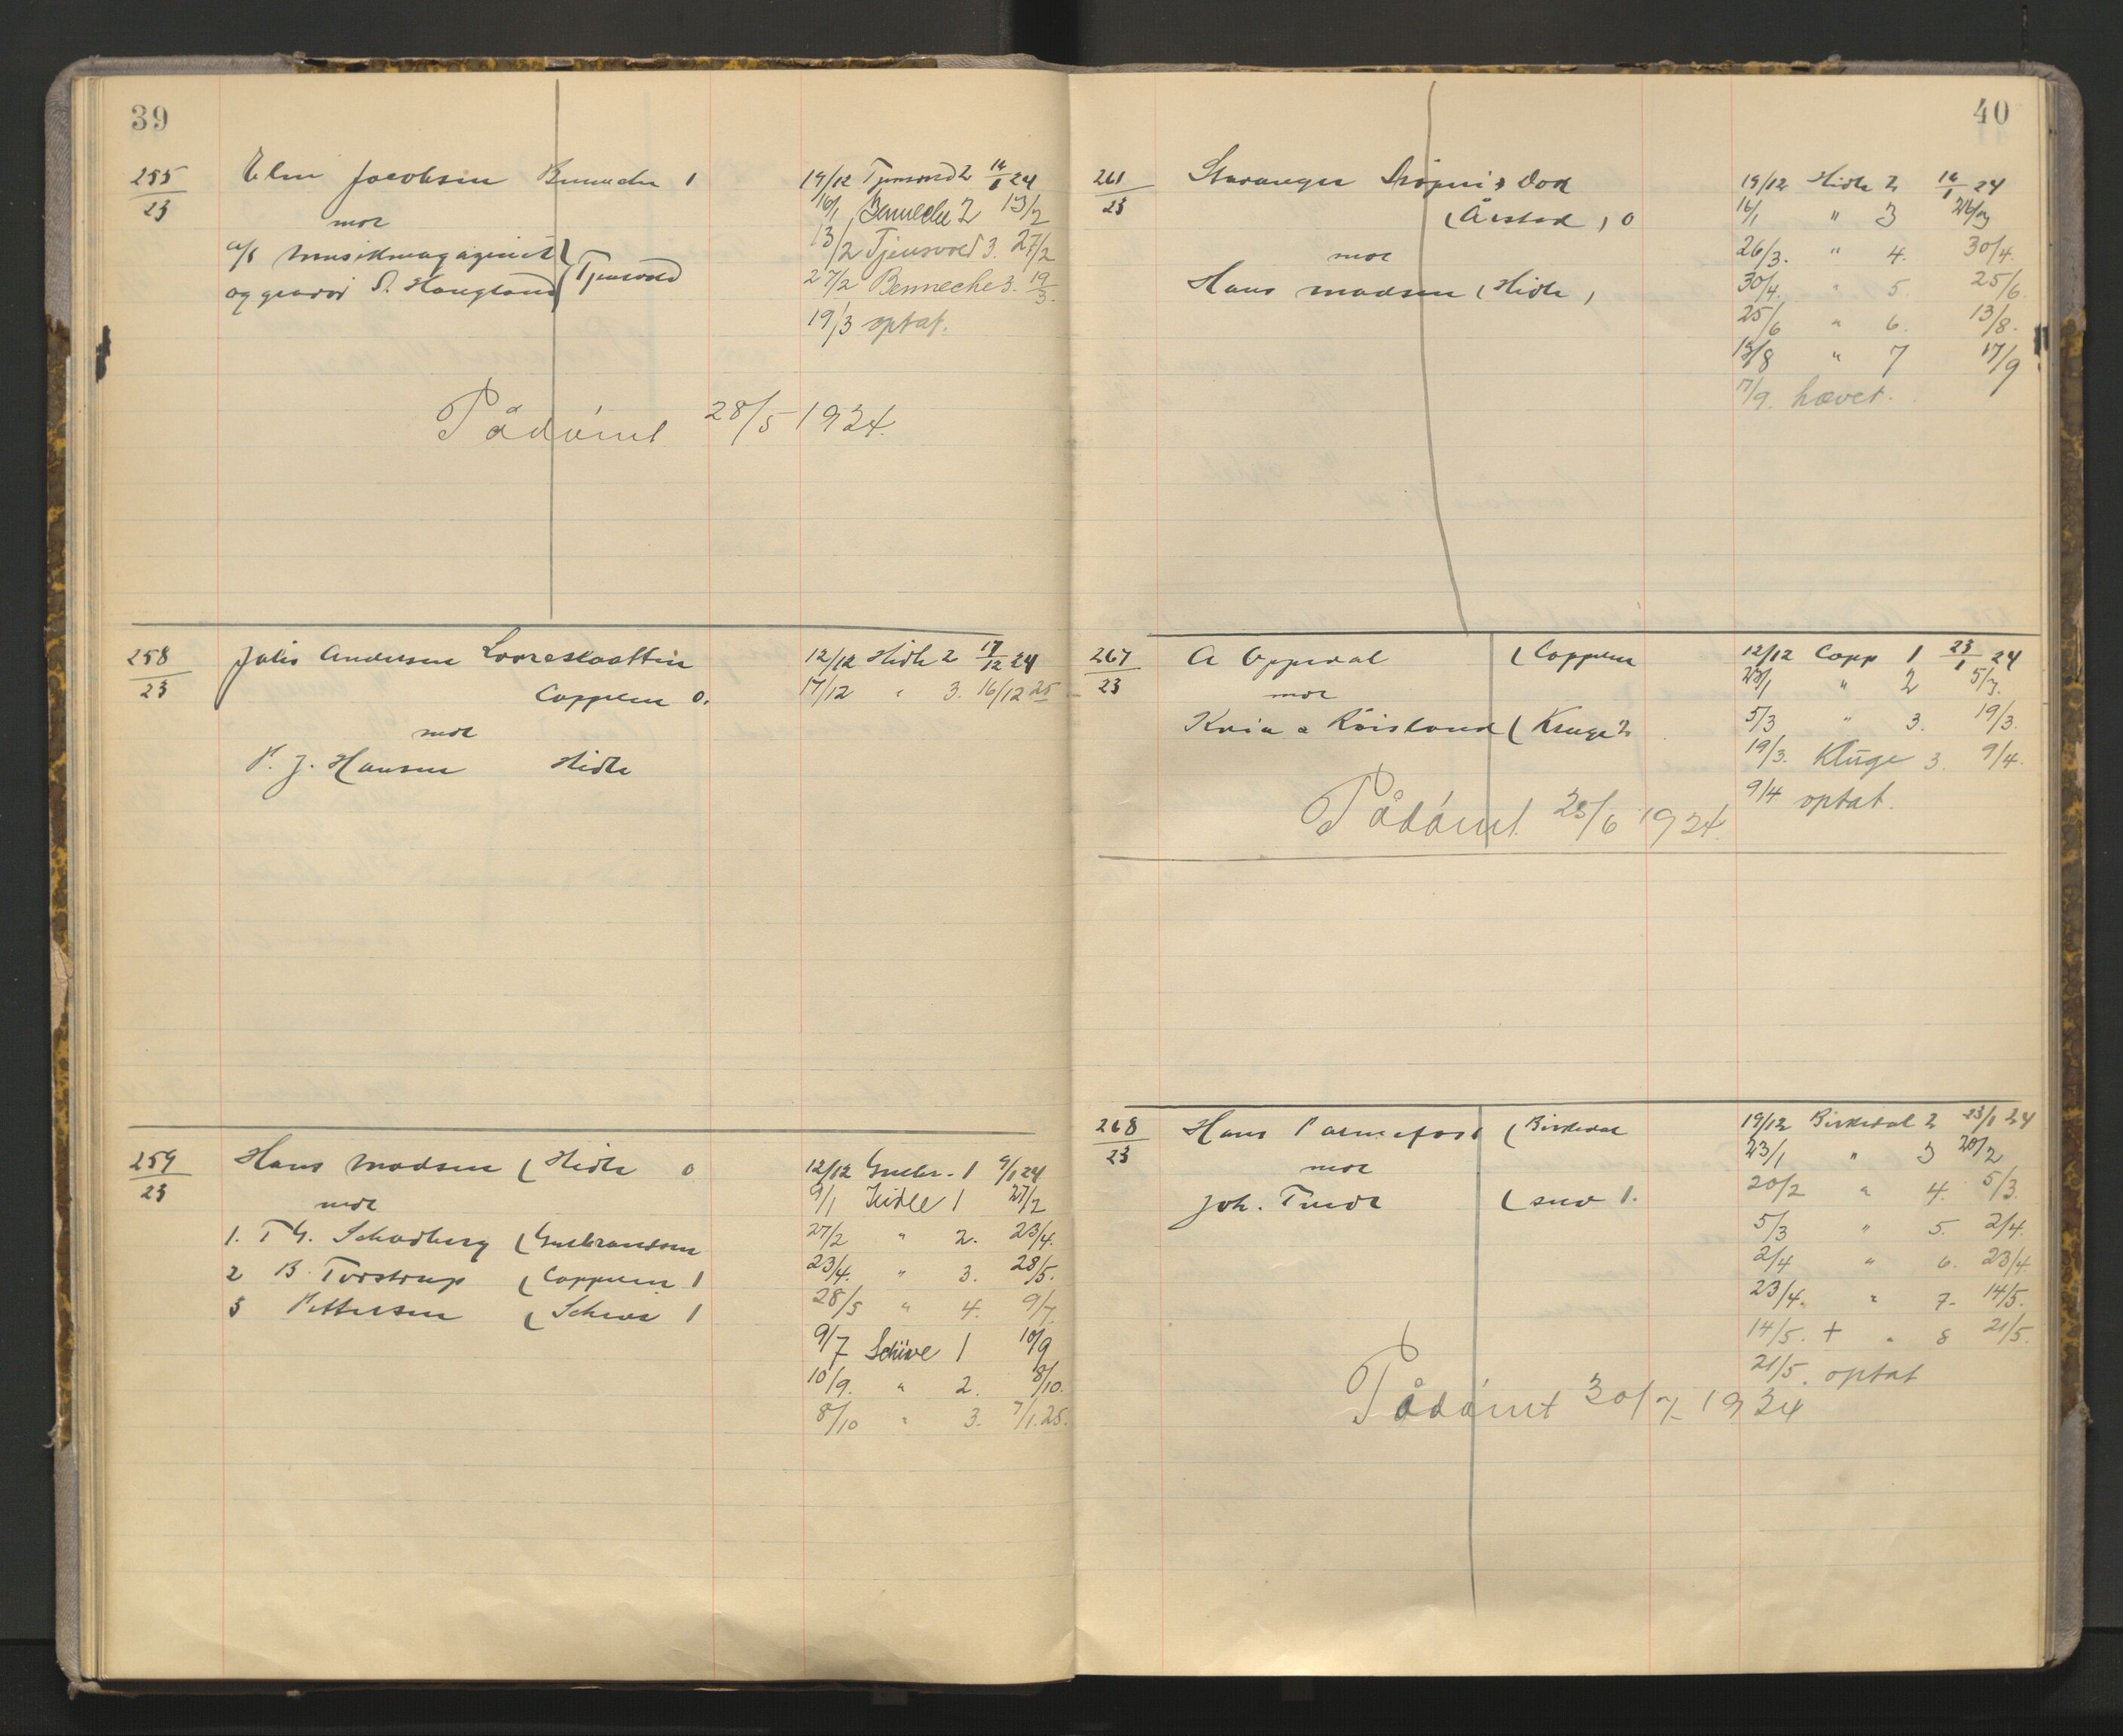 39
255/23 Elin Jacobsen Benneche 1 19/12 Tjensvold 2 16/1 24
mot 16/1 Benneche 2 13/2
a/s musikmagazinet 13/2 Tjensvold 3. 27/2
og gravør S. Haugland Tjensvold 27/2 Benneche 3. 19/3.
19/3 optat.
Pådømt 28/5 1924.
258/23 Julis Andersen 12/12 Hidle 2 17/12 24
Coppleen 0. 17/12 " 3. 16/12 25
mot
P. J. Hansen Hidle
259/23 Hans Madsen ( Hidle 0 12/12 Gulbr. 1 9/1 24
mot 9/1 Hidle 1 27/2
1. T G. Schadberg ( Gulbrandsen 27/2 " 2. 23/4.
2 B. Torstrup ( Copplein 1 23/4. " 3. 28/5.
3 Pettersen ( Schive 1 28/5 " 4. 9/7.
9/7 Schive 1 10/9
10/9. " 2. 8/10.
8/10 " 3. 7/1.25.
40
261/23 Stavanger Skipni & Dok 19/12 Hidle 2 16/1 24
( Årstad, 0 16/1 " 3 26/3
mot 26/3. " 4. 30/4.
Hans Madsen ( Hidle, 30/4. " 5. 25/6.
25/6 " 6. 13/8.
13/8 " 7 17/9
17/9. hævet.
267/23 A Oppedal ( Copplein 12/12 Copp 1 23/1 24
mot 23/1 " 2 5/3.
Kvia & Röisland ( Kluge 2 5/3 " 3. 19/3.
19/3. Kluge 3. 9/4.
9/4 optat.
Pådømt 25/6 1924.
268/23 Hans ( Birkedal 19/12 Birkedal 2 23/1 24
mot 23/1 " 3 20/2
Joh. Tvedt ( selv 1. 20/2 " 4. 5/3.
5/3 " 5. 2/4.
2/4 " 6. 23/4.
23/4. " 7. 14/5.
14/5. + " 8 21/5.
21/5. optat
Pådømt 30/7 1924